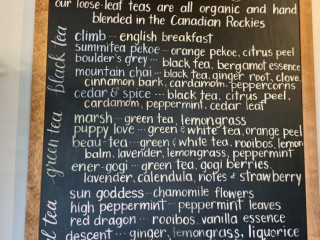 our loose-leaf teas are all organic and hand
blended in the Canadian Rockies
black tea
climb ... english breakfast
summitea pekoe ... orange pekoe, citrus peel
boulder's grey ... black tea, bergamot essence
mountain chai ... black tea, ginger root, clove
cinnamon bark, cardamom, peppercorns
cedar & spice ... black tea, citrus peel,
cardamom, peppermint, cedar leaf
green tea
marsh ... green tea, lemongrass
puppy love ... green & white tea, orange peel
beau-tea ... green & white tea, rooibos, lemon
balm, lavender, lemongrass, peppermint
ener-gogi ... green tea, gogi berries
lavender, calendula, notes of strawberry
sun goddess ... chamomile flowers
high peppermint ... peppermint leaves
red dragon ... rooibos, vanilla essence
descent ... ginger, lemongrass, liquorice
tea